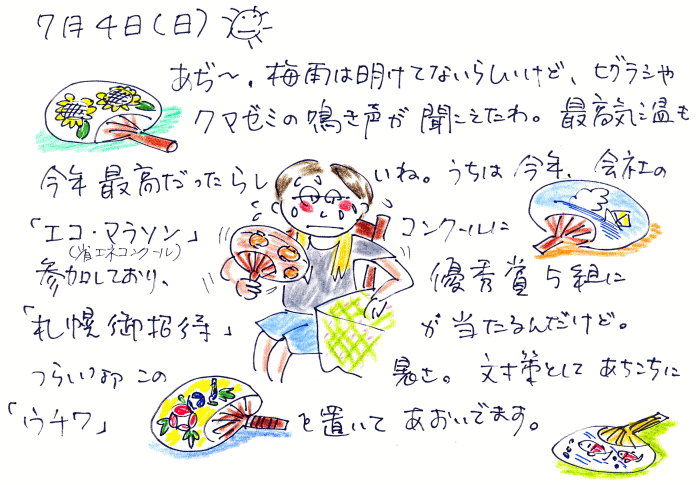 7月4日(日)
あぢ〜。梅雨は明けてないらしいけど、ヒグラシや
クマゼミの鳴き声が聞こえたわ。最高気温も
今年最高だったらしいね。うちは今年、会社の
「エコ・マラソン」コンクールに
(省エネコンクール)
参加しており、優秀賞5組に
「札幌御招待」が当たるんだけど。
つらいわこの暑さ。対策としてあちこちに
「ウチワ」を置いてあおいでます。